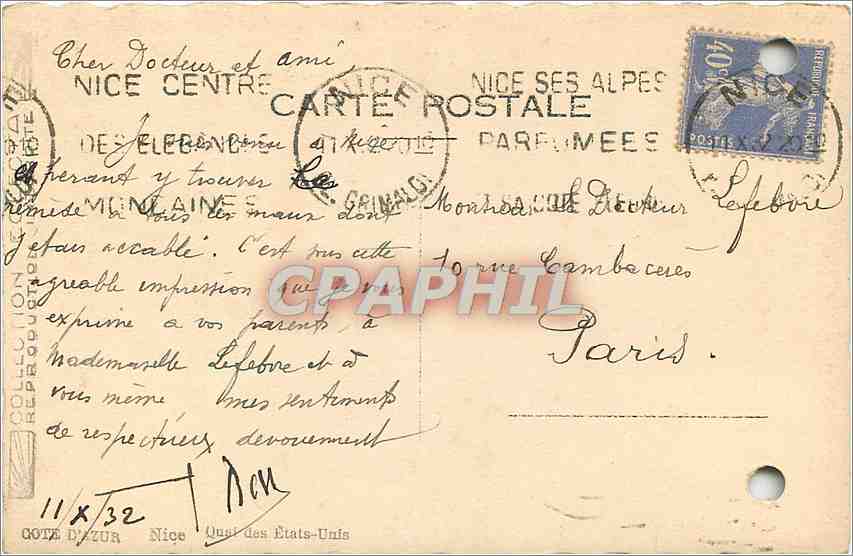 Cher Docteur et ami,
NICE CENTRE
NICE
NICE SES ALPES
40c
POSTES
NICE
CARTE POSTALE
DES ELEGANCES
PARFUMEES
Je suis venu a Nice
esperant y trouver les
MONDAINES
GRIMALDI
SA COTE FLEURIE
remède à tous les maux dont
j'etais accablé. C'est sous cette
agreable impression que je vous
exprime a vos parents, à
Mademoiselle Lefebvre et à
vous même mes sentiments
de respectueux devouement
11/X/32
Monsieur Le Docteur Lefebvre
10 rue Cambacérès
Paris.
CPAPHIL
COTE D'AZUR Nice Quai des États-Unis